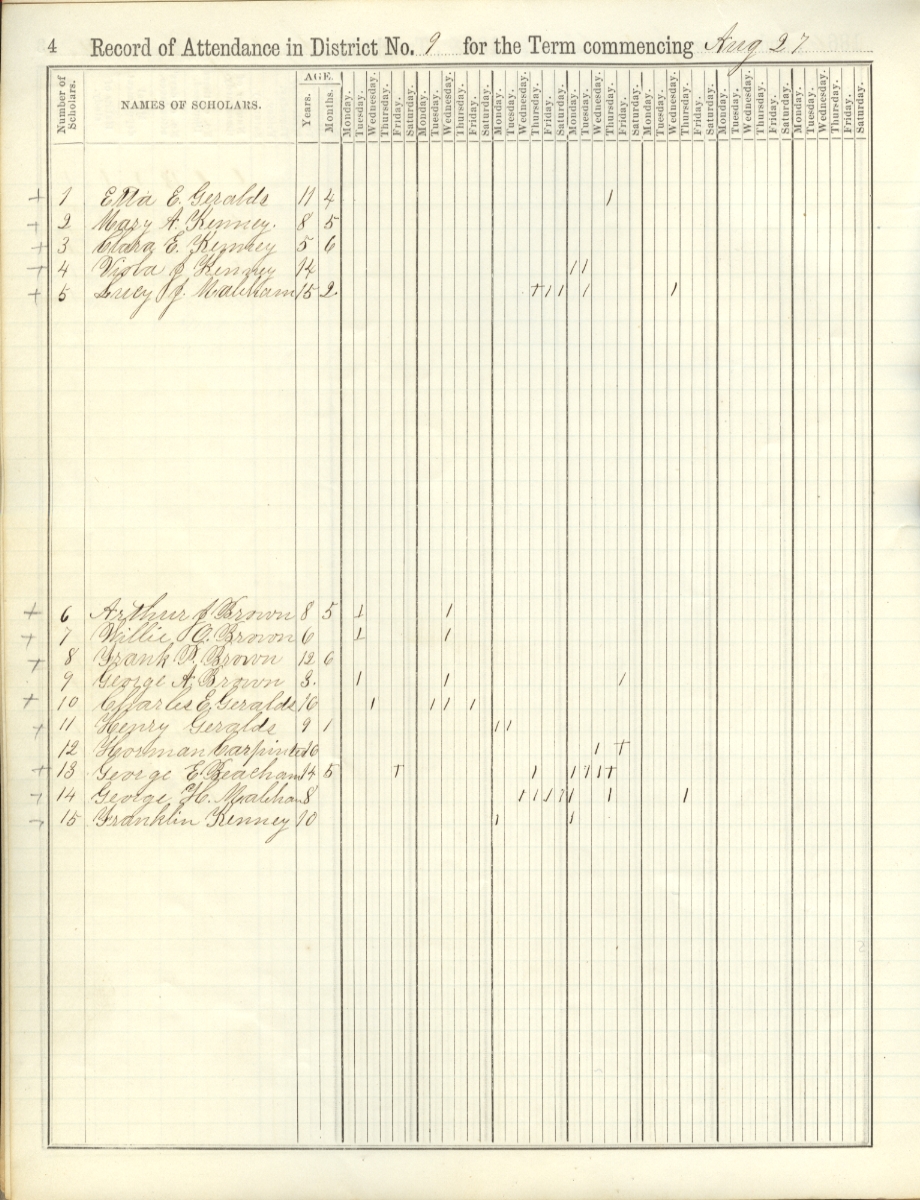 4 Record of Attendance in District No. 9 for the Term commencing Aug 27
Number of Scholars. NAMES OF SCHOLARS. AGE. Years. Months. Monday. Tuesday. Wednesday. Thursday. Friday. Saturday. Monday. Tuesday. Wednesday. Thursday. Friday. Saturday. Monday. Tuesday. Wednesday. Thursday. Friday. Saturday. Monday. Tuesday. Wednesday. Thursday. Friday. Saturday. Monday. Tuesday. Wednesday. Thursday. Friday. Saturday. Monday. Tuesday. Wednesday. Thursday. Friday. Saturday. Monday. Tuesday. Wednesday. Thursday. Friday. Saturday.
+ 1 Etta E. Geralds 11 4
+ 2 Mary A. Kenney. 8 5
+ 3 Clara E. Kenney 5 6
+ 4 Viola J Kenney 14
+ 5 Lucy J. 15 2
+ 6 Arthur J Brown 8 5
+ 7 Willie O. Brown 6
+ 8 Frank P. Brown 12 6
9 George A Brown 3.
+ 10 Charles E Geralds 16
+ 11 Henry Geralds 9 1
12 Horman Carpinter 16
+ 13 George E Beacham 14 5
14 George H. 8
15 Franklin Kenney 10